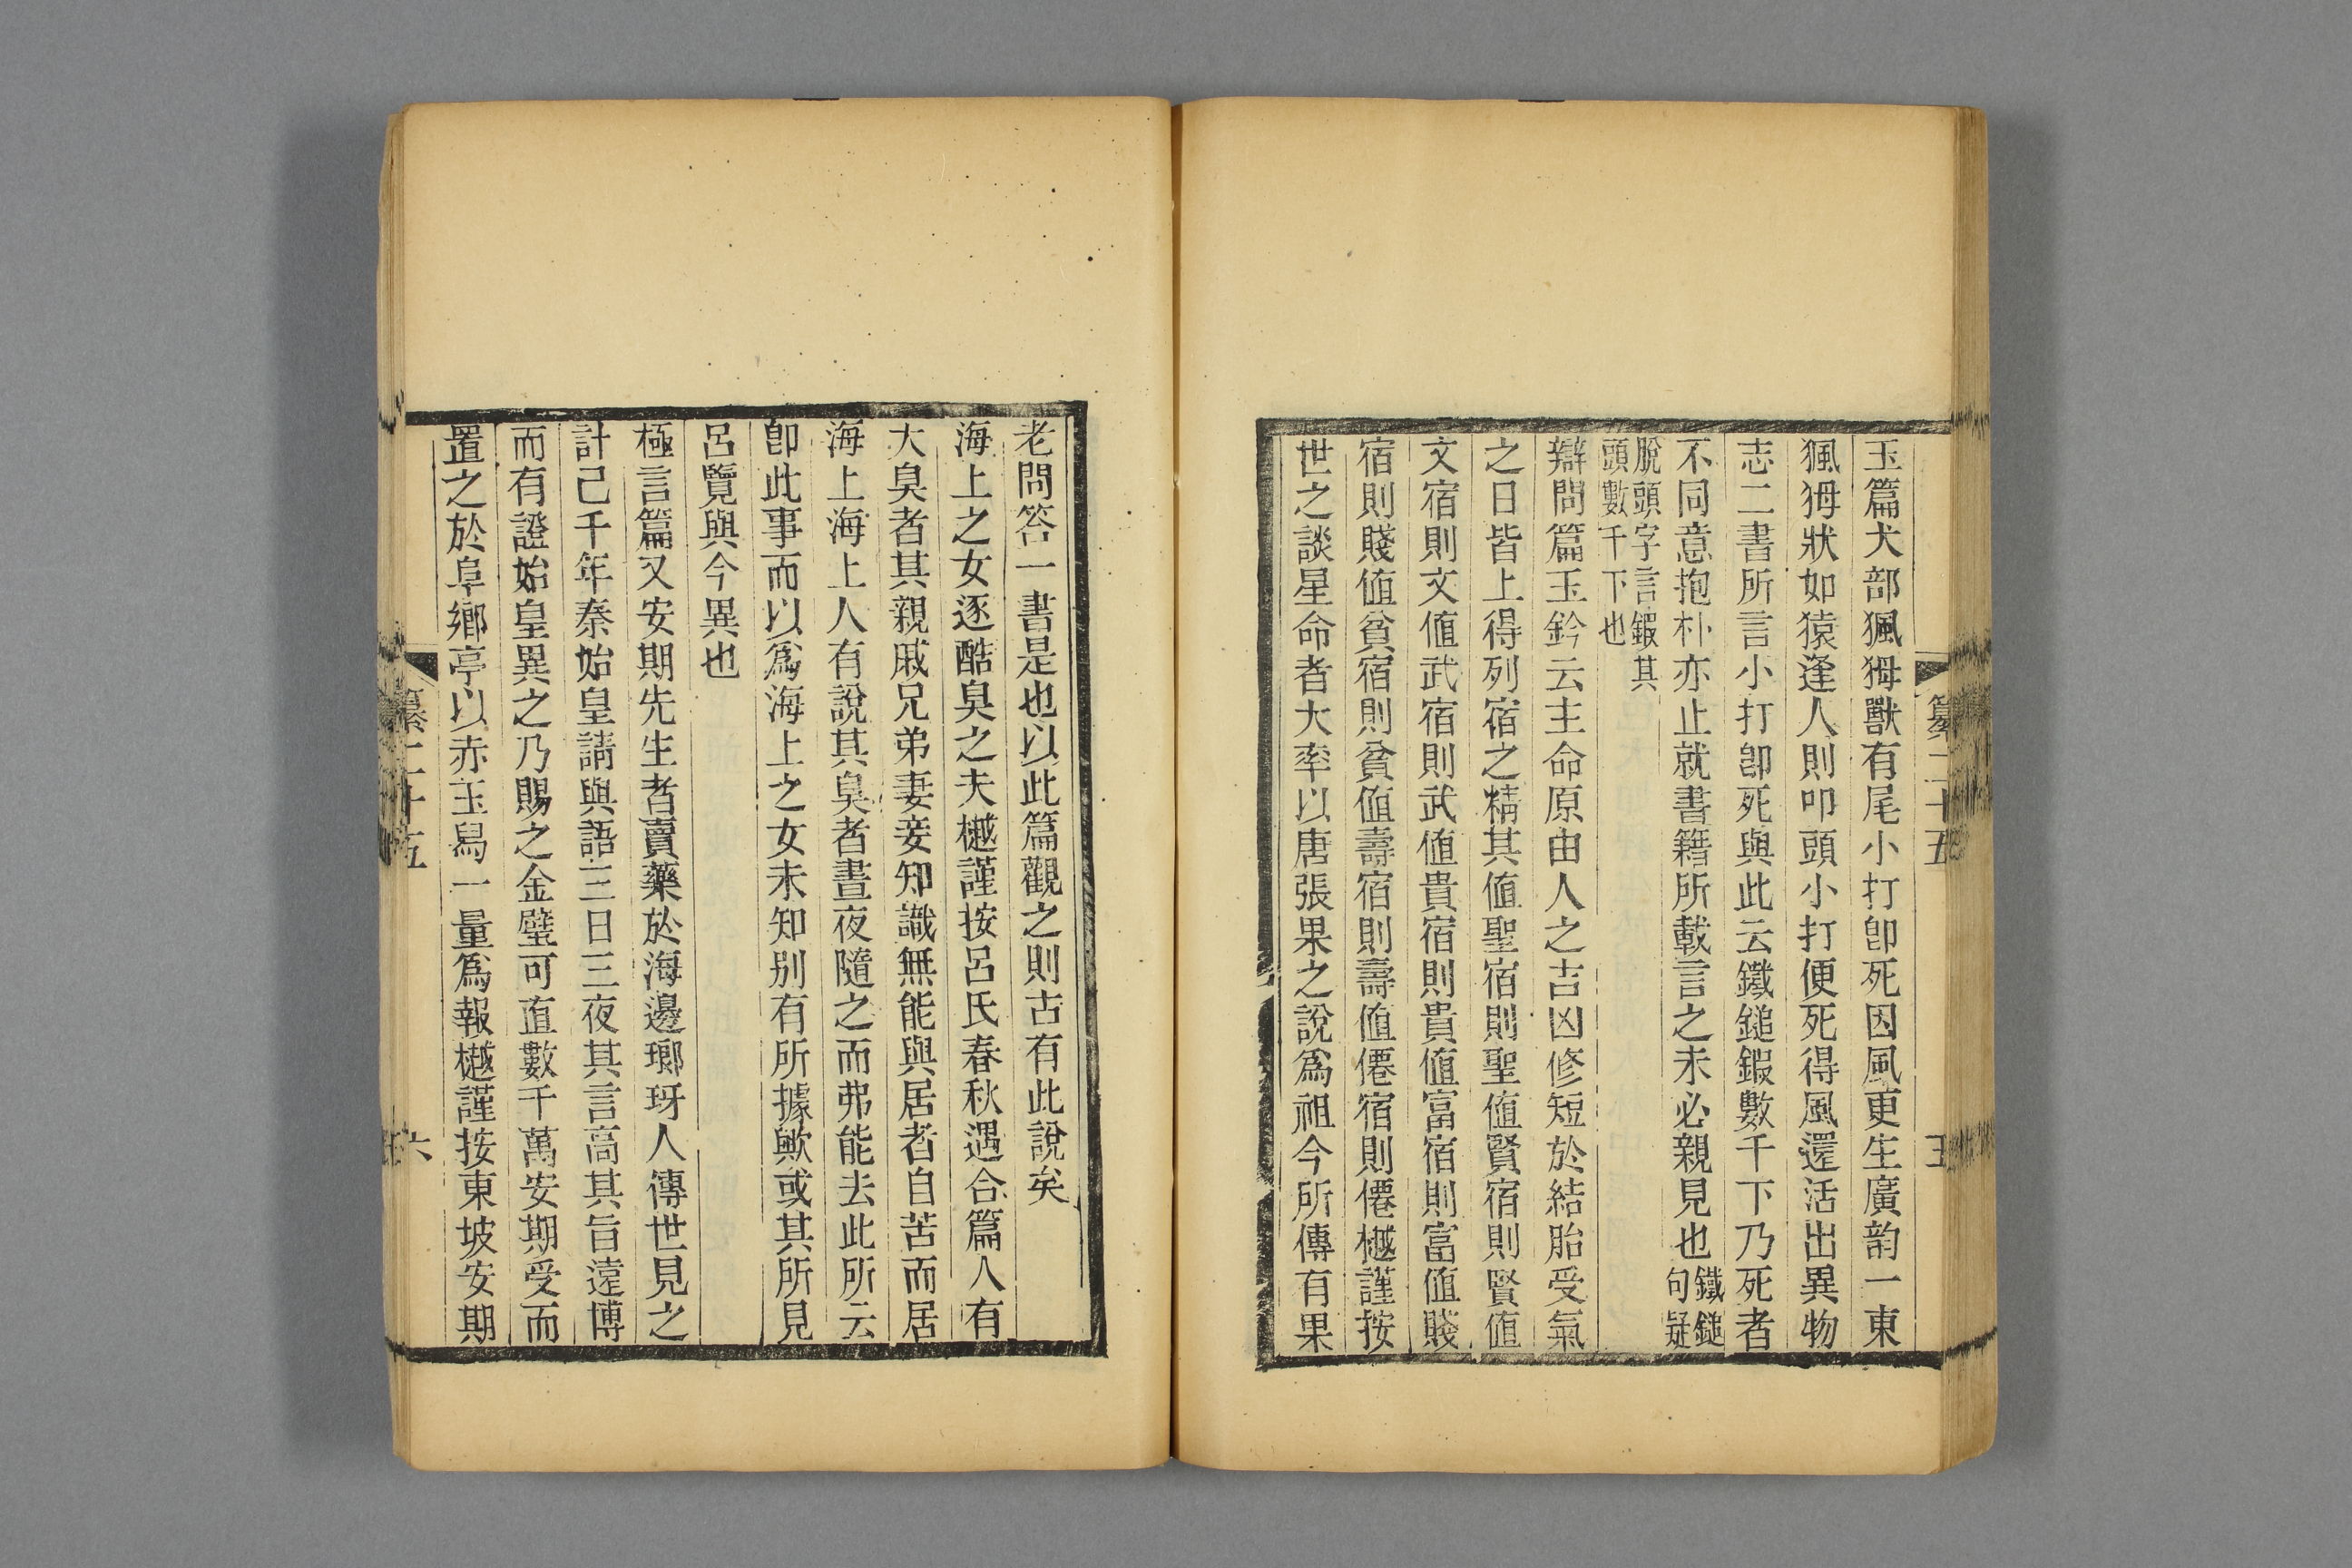 玉篇犬部猦㺟獸有尾小打卽死因風更生廣韵一東
猦㺟狀如猿逢人則叩頭小打便死得風還活出異物
志二書所言小打卽死與此云鐵鎚鍜數千下乃死者
不同意抱朴亦止就書籍所載言之未必親見也鐵鎚句疑
脫頭字言鍜其頭數千下也
辯問篇玉鈐云主命原由人之吉凶修短於結胎受氣
之日皆上得列宿之精其值聖宿則聖值賢宿則賢值
文宿則文值武宿則武值貴宿則貴值富宿則富值賤
宿則賤值貧宿則貧值壽宿則壽值僊宿則僊樾謹按
世之談星命者大率以唐張果之說爲祖今所傳有果
老問答一書是也以此篇觀之則古有此說矣
海上之女逐酷臭之夫樾謹按呂氏春秋遇合篇人有
大臭者其親戚兄弟妻妾知識無能與居者自苦而居
海上海上人有說其臭者晝夜隨之而弗能去此所云
卽此事而以爲海上之女未知別有所據歟或其所見
呂覽與今異也
極言篇又安期先生者賣藥於海邊瑯玡人傳世見之
計己千年秦始皇請與語三日三夜其言高其旨遠博
而有證始皇異之乃賜之金璧可直數千萬安期受而
置之於阜鄉亭以赤玉舄一量爲報樾謹按東坡安期
纂二十五
五
纂二十五
六